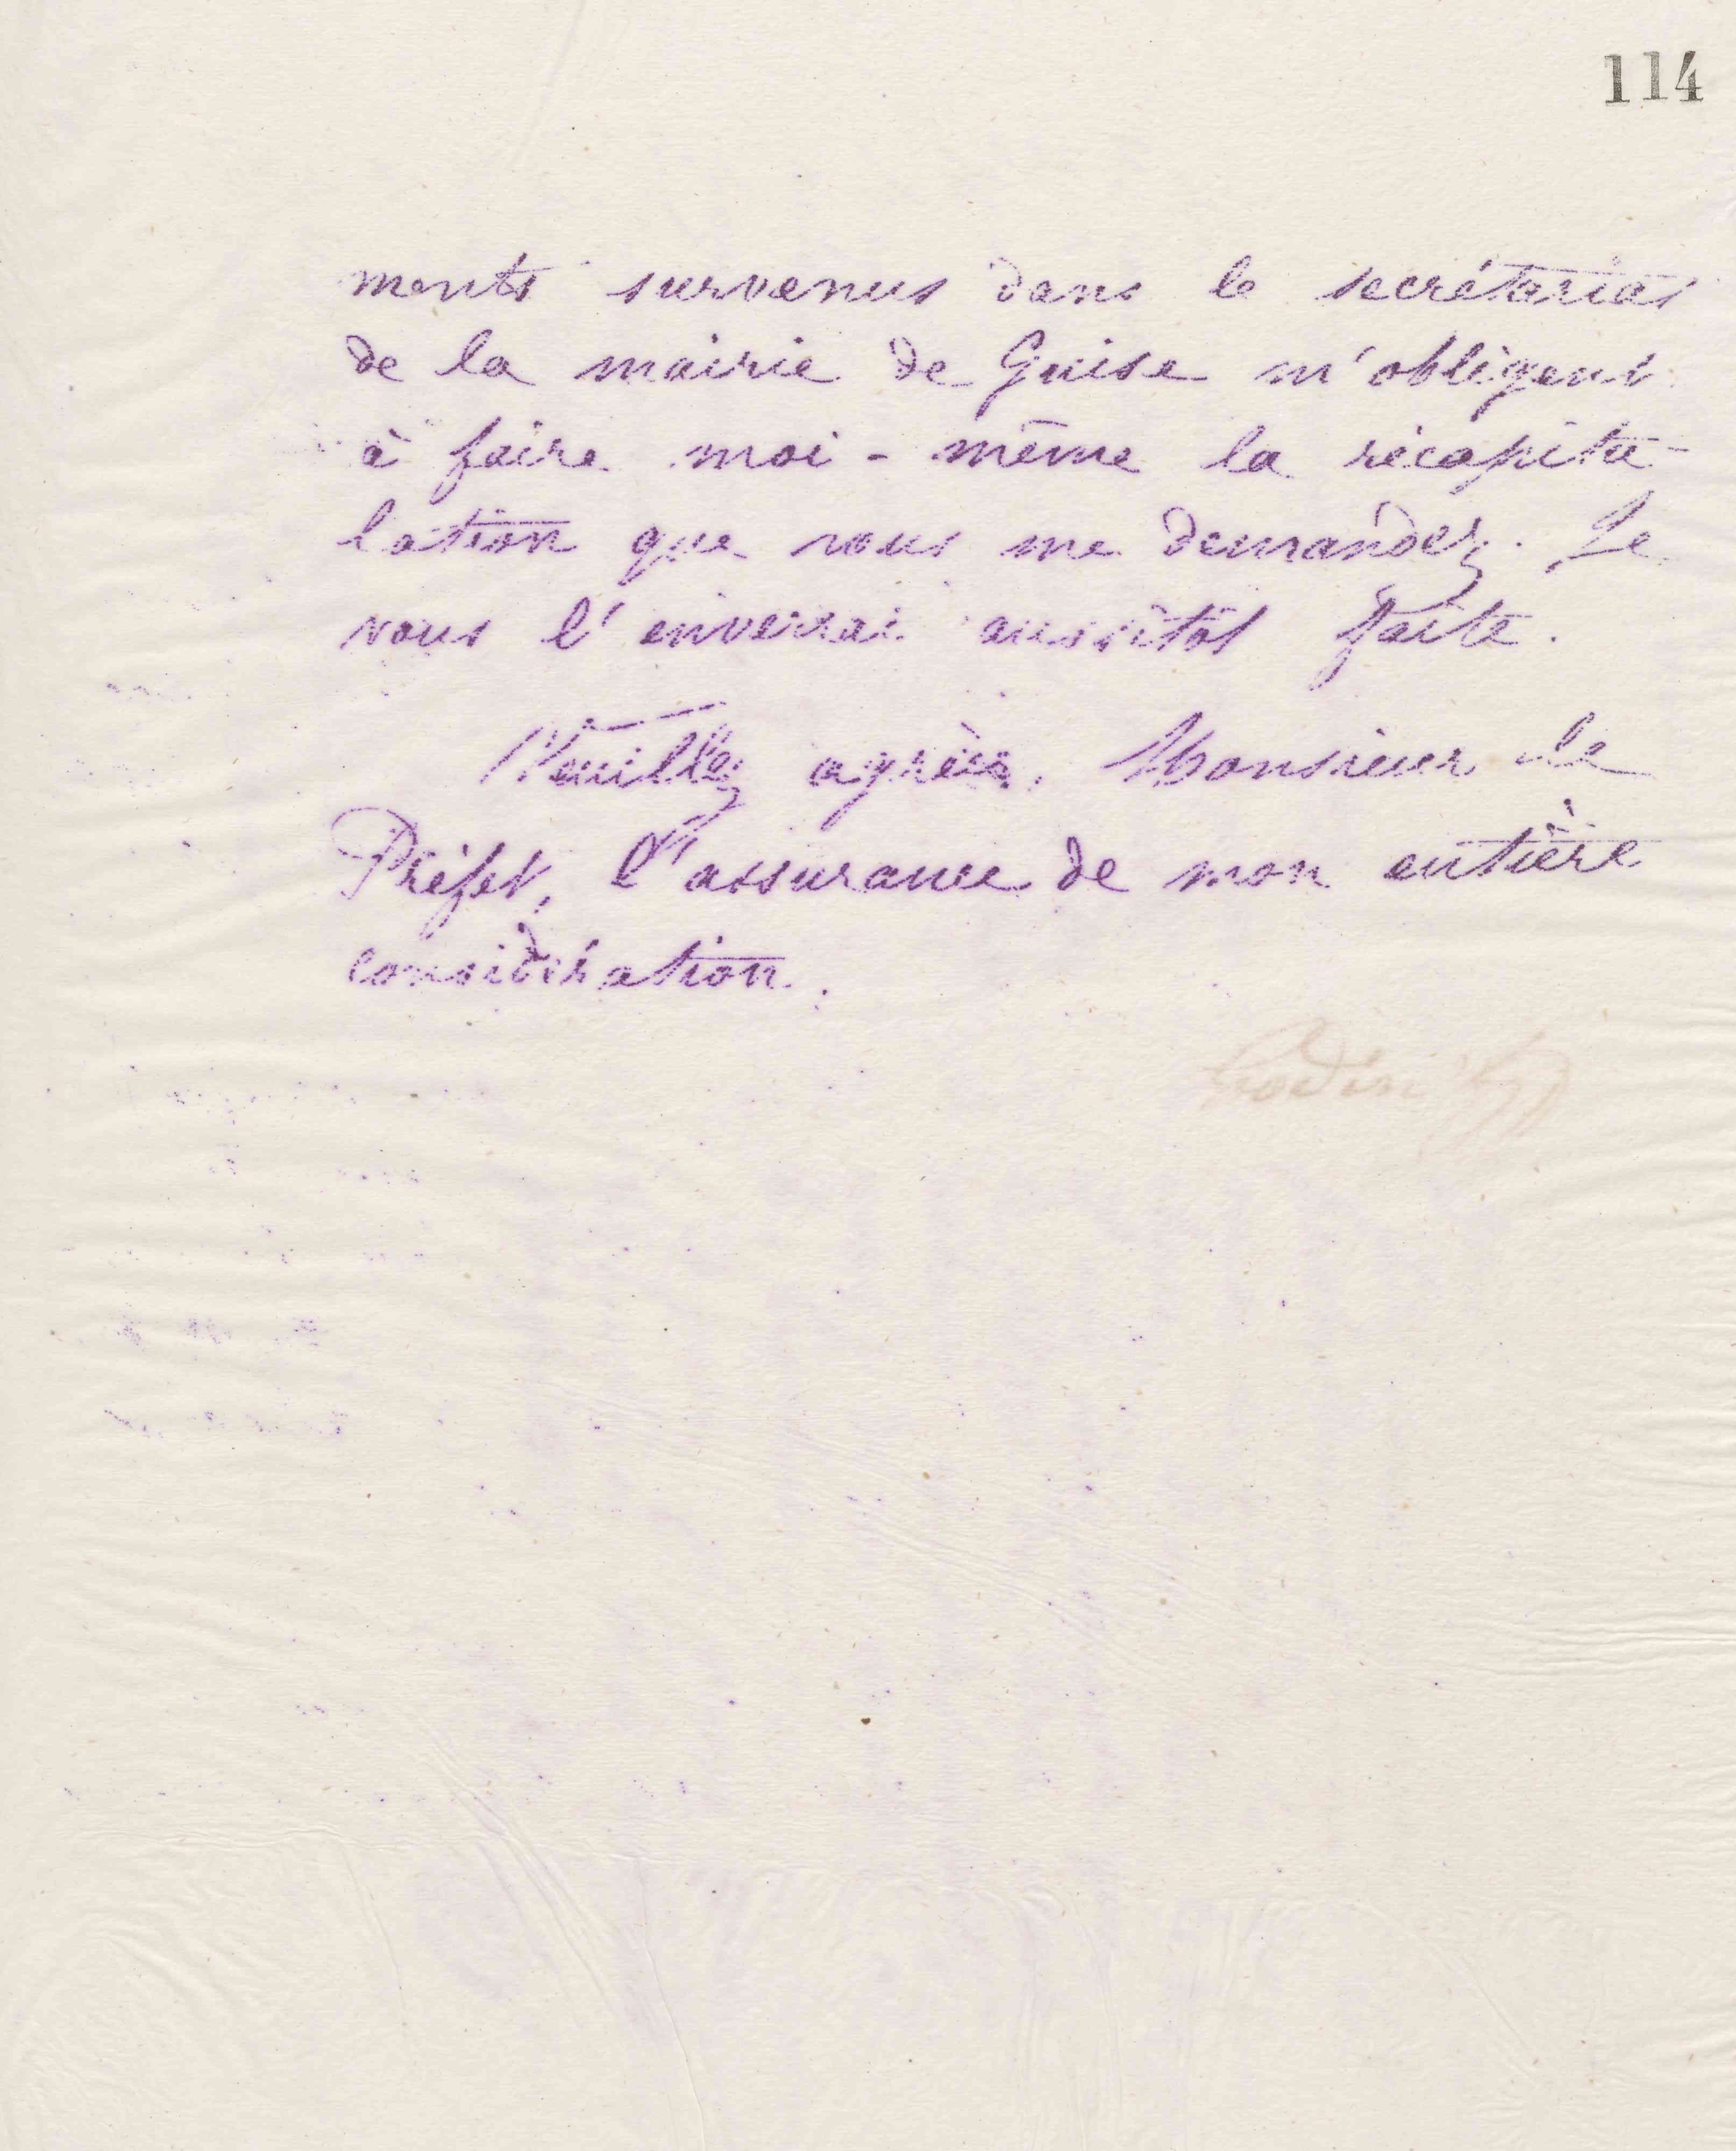 114
ments survenus dans le secrétariat
de la mairie de Guise m'obligent
à faire moi-même la récapitu-
lation que vous me demandez. Je
vous l'enverrai aussitôt faite.
Veuillez agréer, Monsieur le
Préfet, l'assurance de mon entière
considération.
Godin